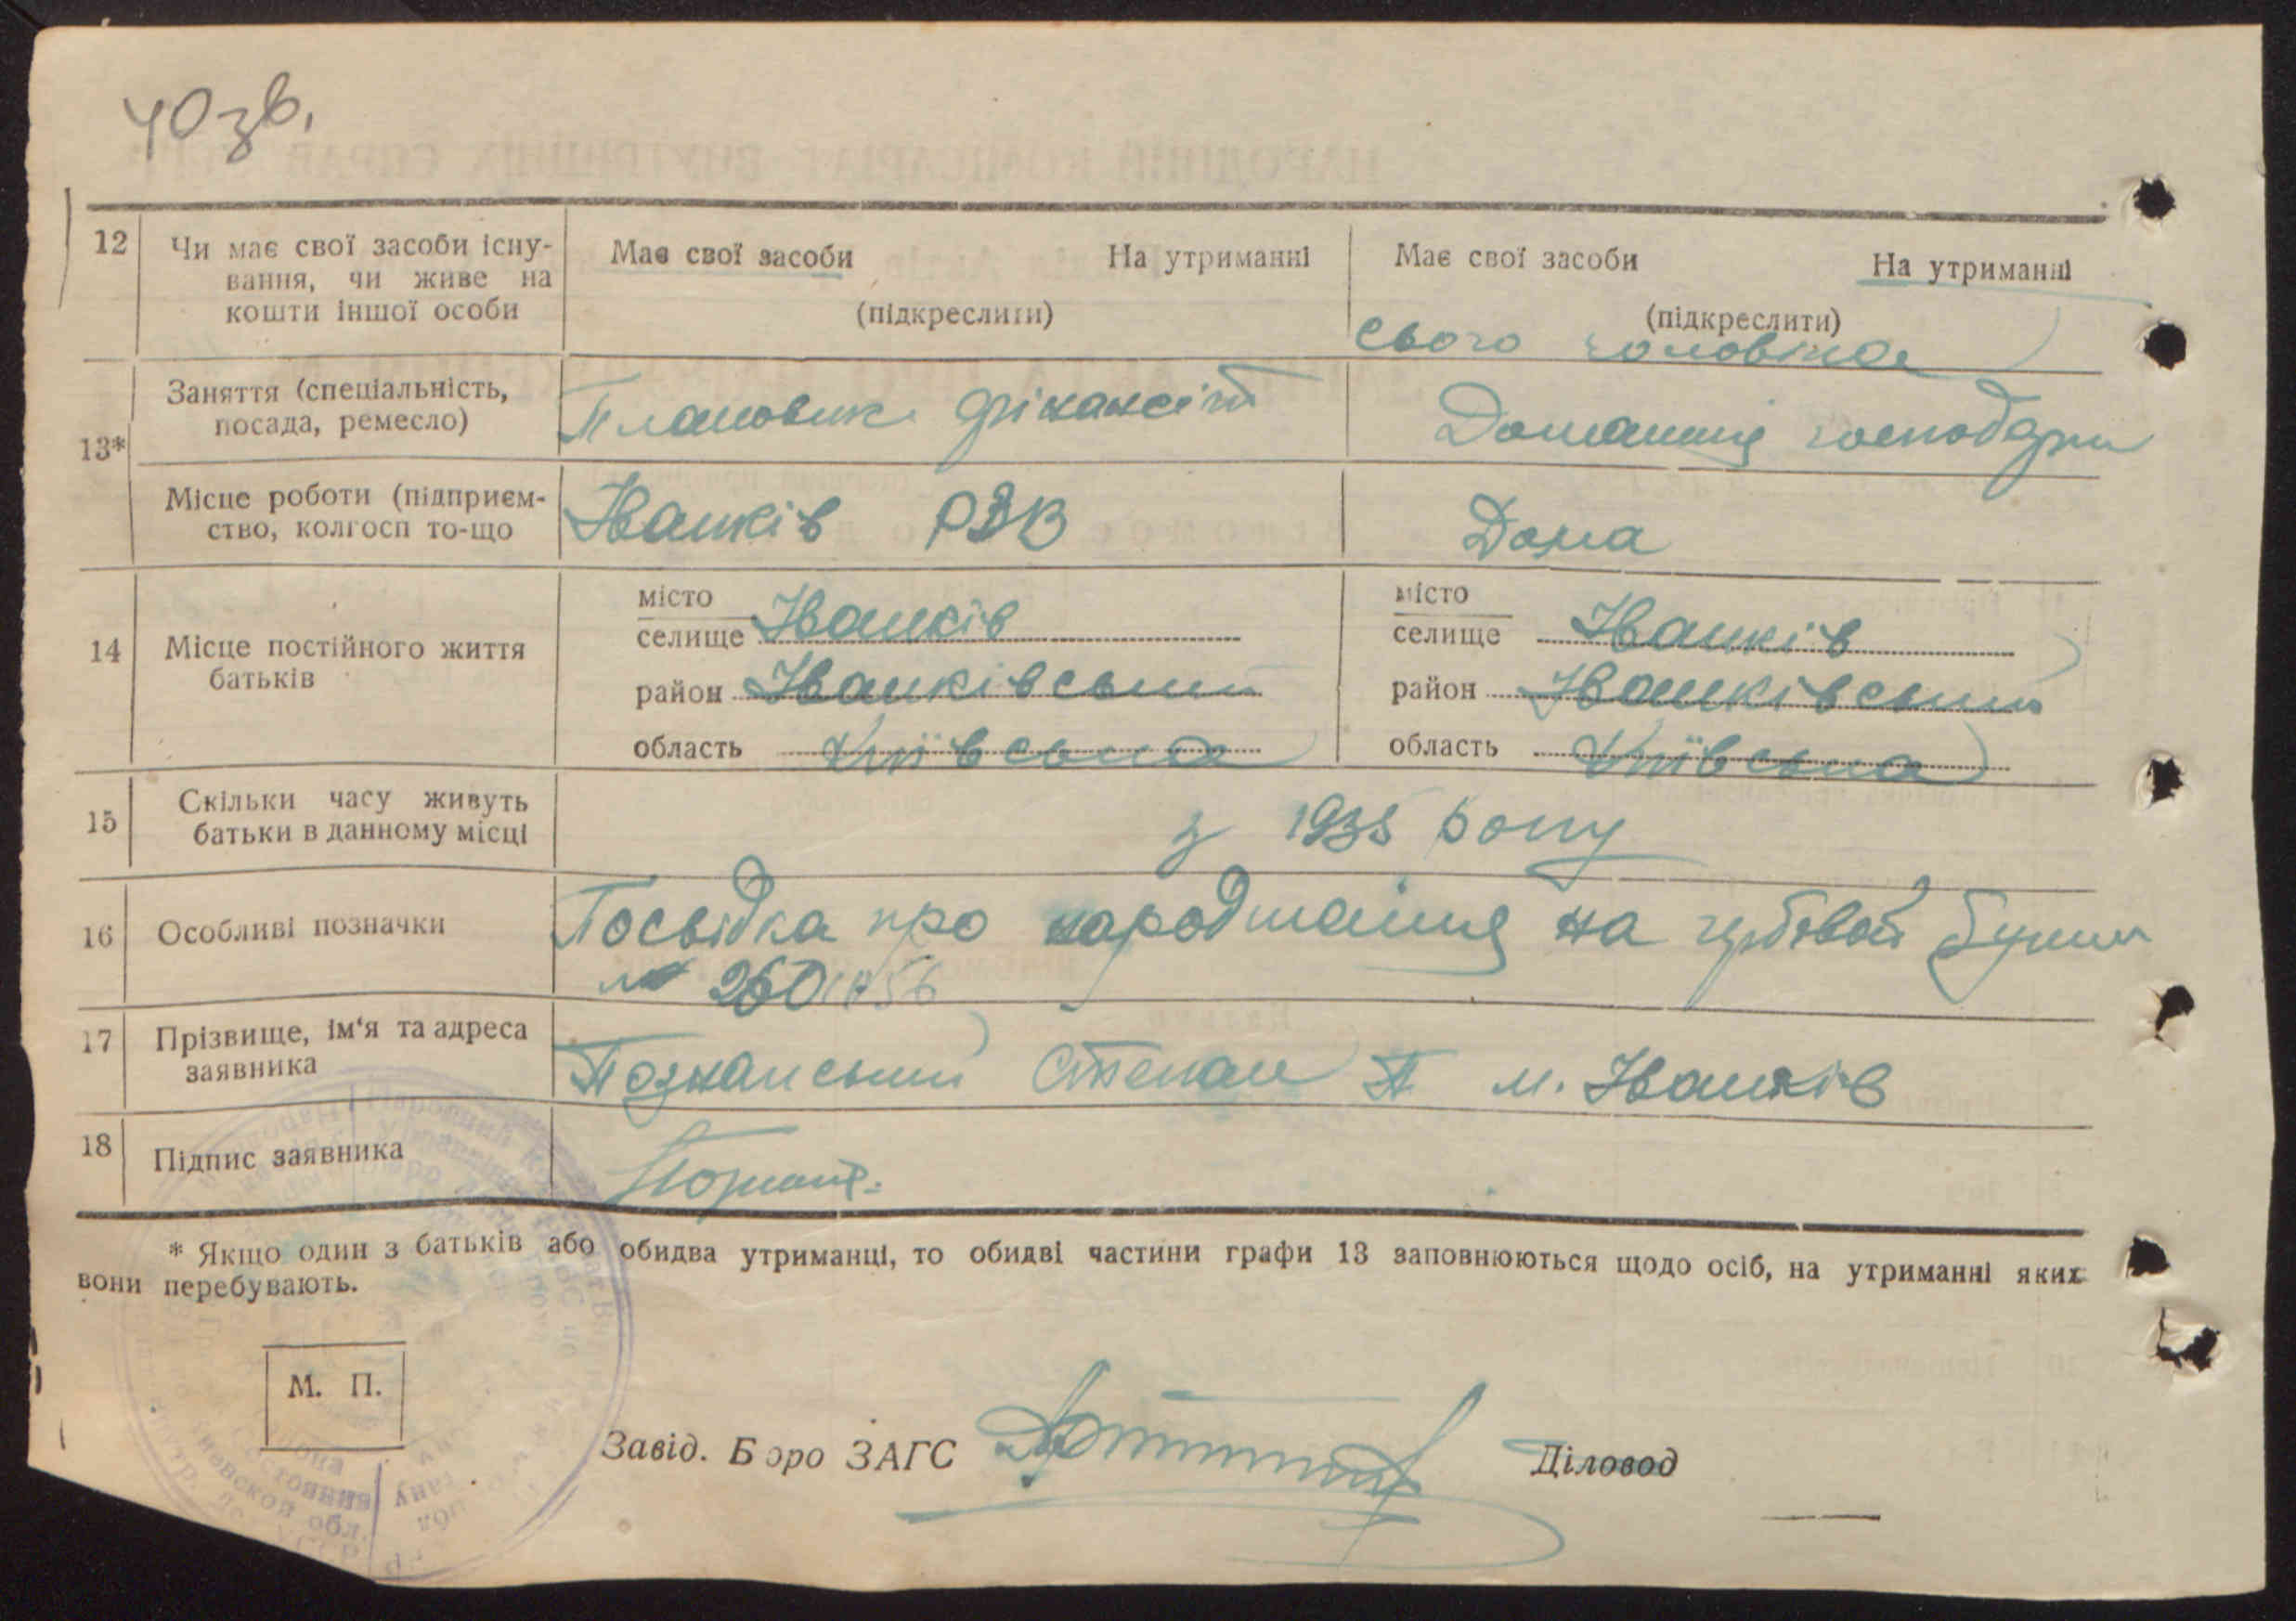 40 зв.
12 Чи має свої засоби існу-
вання, чи живе на
кошти іншої особи
Має свої засоби На утриманні
(підкреслити)
Має свої засоби На утриманні
(підкреслити)
свого чоловіка
13*
Заняття (спеціальність,
посада, ремесло)
Плановик фінансіст
Домашня господарка
Місце роботи (підприєм-
ство, колгосп то-що
Іванків РЗВ
Дома
14 Місце постійного життя
батьків
місто
селище Іванків
район Іванківський
область Київська
місто
селище Іванків
район Іванківський
область Київська
15 Скільки часу живуть
батьки в данному місці
з 1935 року
16 Особливі позначки
Посвідка про народження на гербовой бумаги
№ 2601056
17 Прізвище, ім'я та адреса
заявника
Познанський Степан П м. Іванків
18 Підпис заявника
* Якщо один з батьків або обидва утриманці, то обидві частини графи 13 заповнюються щодо осіб, на утриманні яких
вони перебувають.
М. П.
Завід. Бюро ЗАГС
Діловод